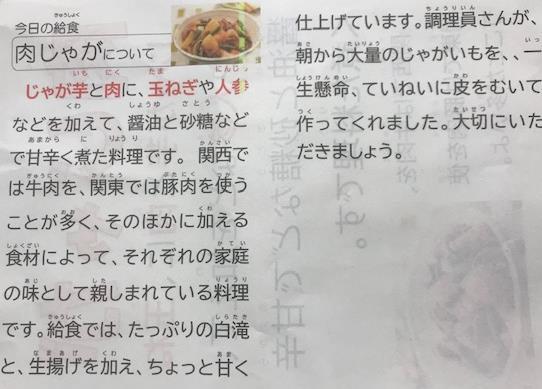 今日の給食
肉じゃがについて
じゃが芋と肉に、玉ねぎや人参
などを加えて、醤油と砂糖など
で甘辛く煮た料理です。関西で
は牛肉を、関東では豚肉を使う
ことが多く、そのほかに加える
食材によって、それぞれの家庭
の味として親しまれている料理
です。給食では、たっぷりの白滝
と、生揚げを加え、ちょっと甘く
仕上げています。調理員さんが、
朝から大量のじゃがいもを、、一
生懸命、ていねいに皮をむいて
作ってくれました。大切にいた
だきましょう。